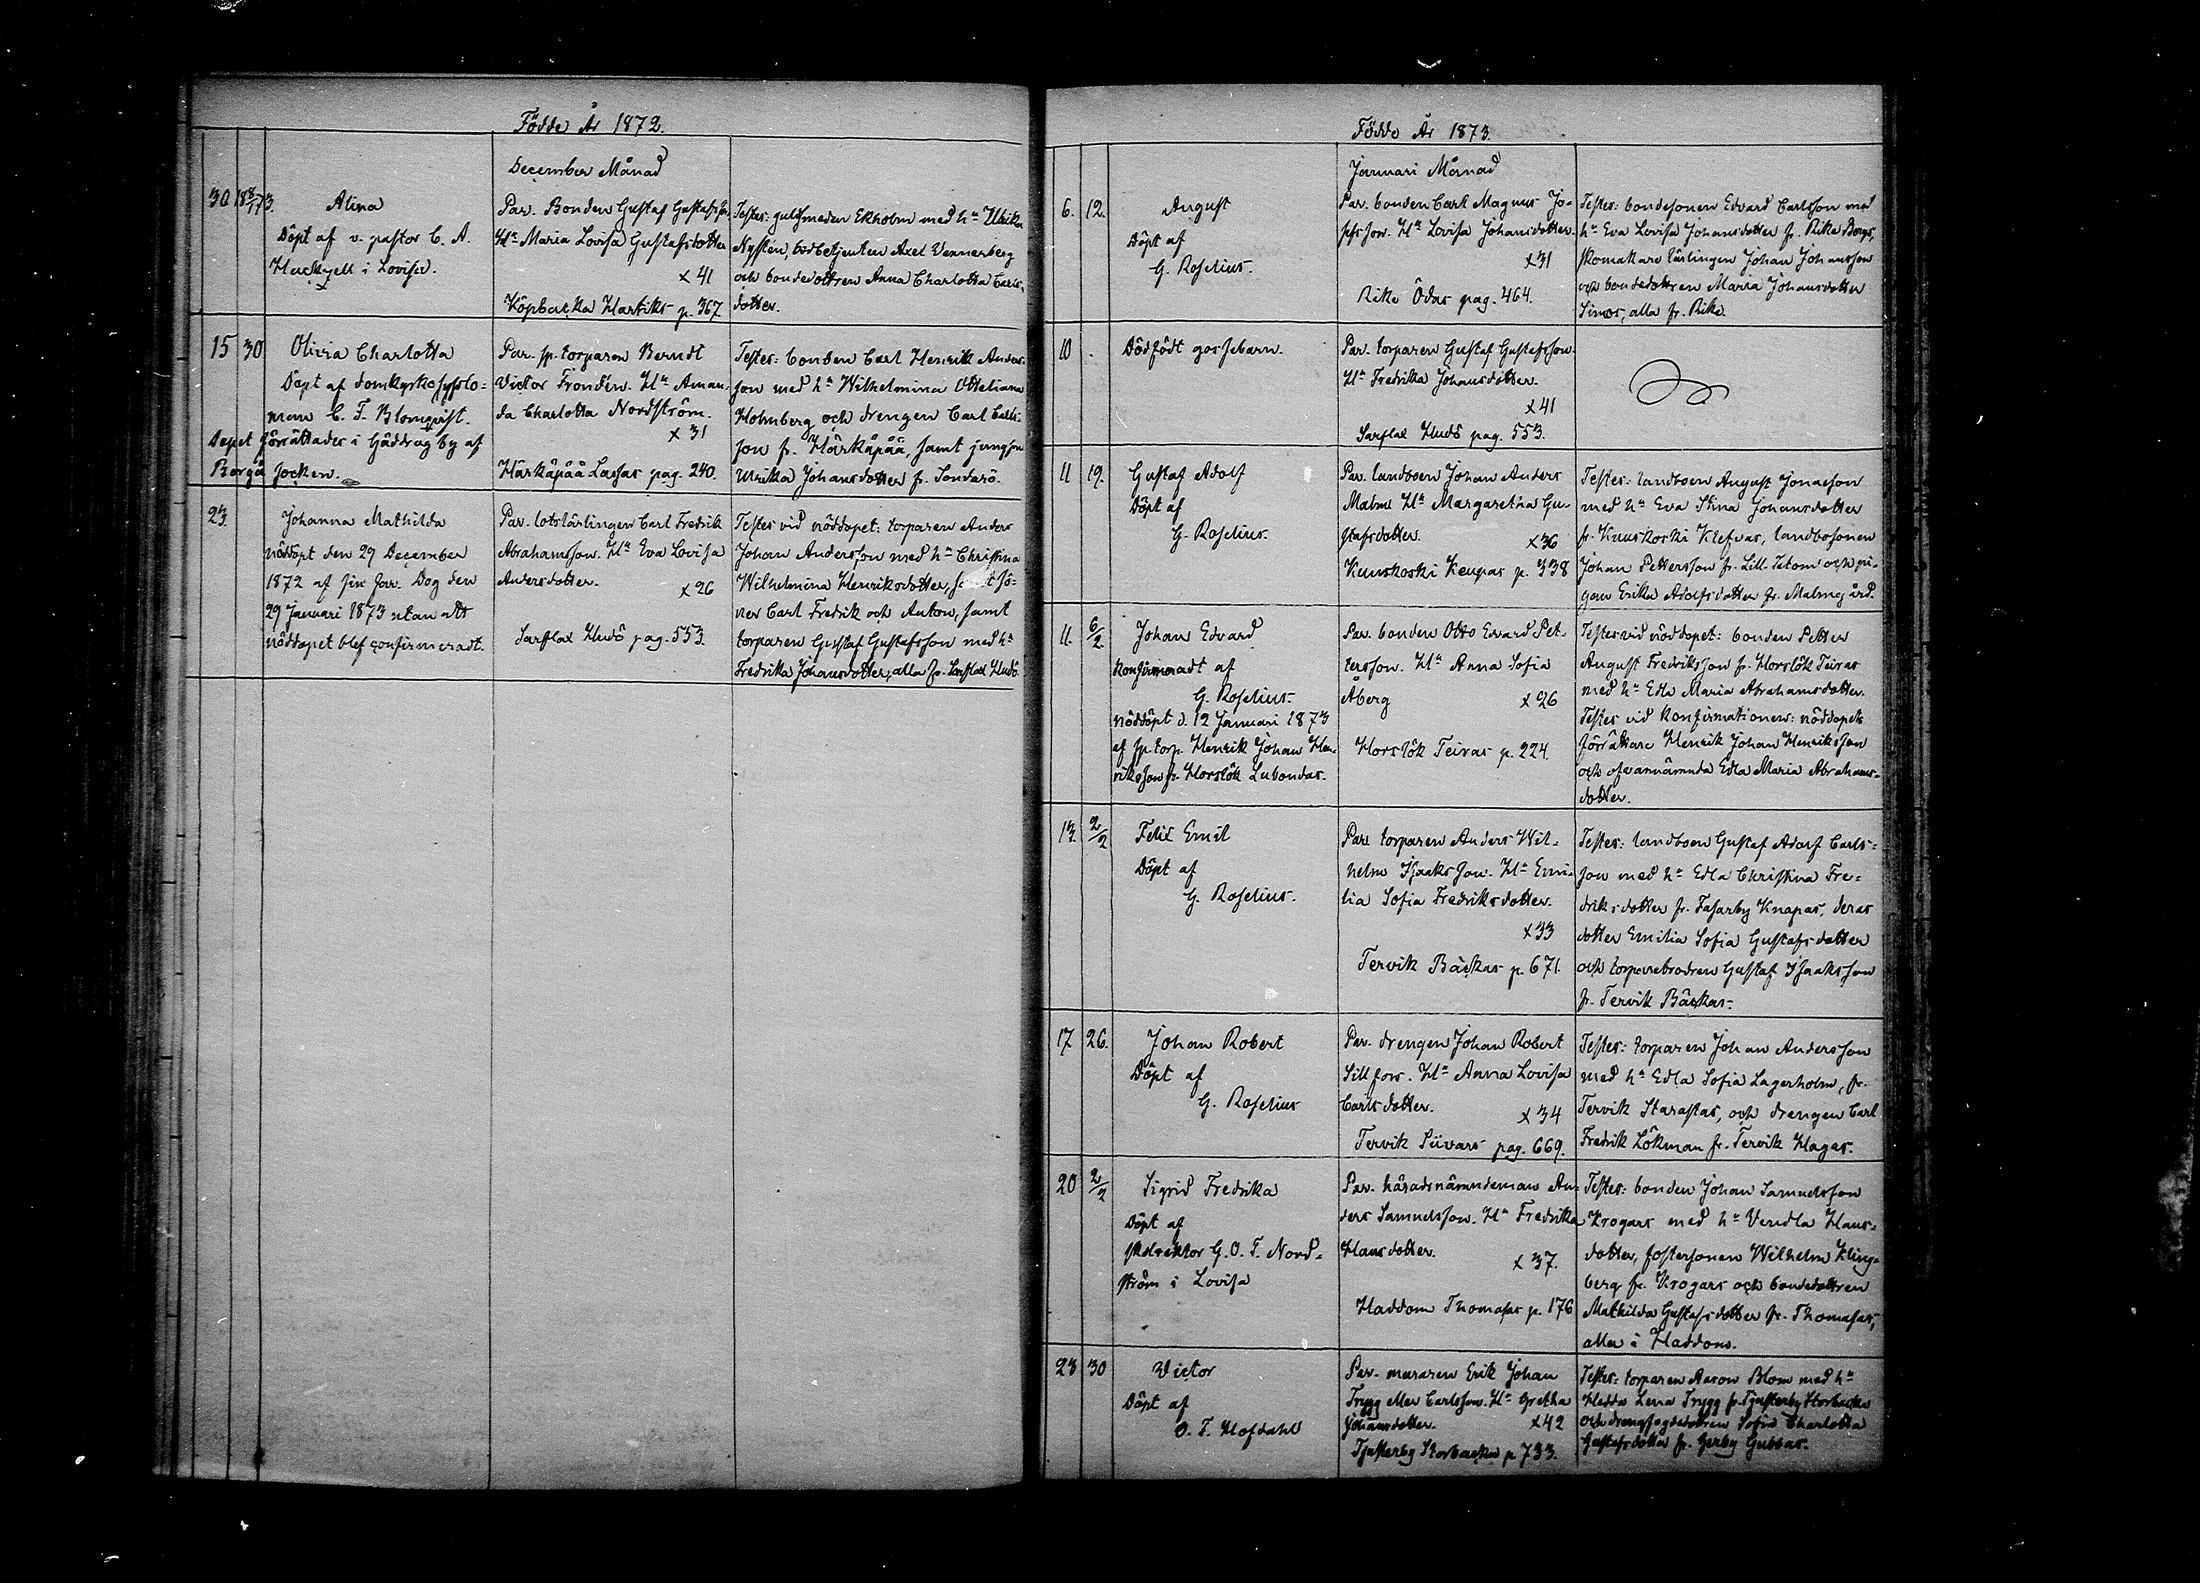 Födde År 1872.
December Månad
30
Alina
Döpt af v. pastor C. A.
i Lovisa.
Par. Bonden Gustaf Gustafsson
Hu Maria Lovisa Gustafsdotter
x 41
Köpbacka Hartiks p. 367
Testes: guldsmeden Ekholm med hu Ulrika
Nysten, Axel Vennerberg
och bondedottren Anna Charlotta Carls-
dotter.
15 30
Olivia Charlotta
Döpt af domkyrkosysslo-
man C. F. Blomqvist.
Dopet förrättades i Gäddrag by af
Borgå Socken.
Par. sp. torparen Berndt
Victor Frondén. Hu Aman-
da Charlotta Nordström.
x 31
Härkäpää Lassas pag. 240.
Testes: bonden Carl Henrik Anders-
son med hu Wilhelmina Otteliana
Holmberg och drengen Carl Carls-
son fr. Härkäpää, samt jungfru
Ulrika Johansdotter fr. Sondarö.
23
Johanna Mathilda
nöddöpt den 29 December
1872 af sin far. Dog den
29 Januari 1873 utan att
nöddopet blef confirmeradt.
Par. lotslärlingen Carl Fredrik
Abrahamsson. Hu Eva Lovisa
Andersdotter.
x 26
Sarflax Hudö pag. 553.
Testes vid nöddopet: torparen Anders
Johan Andersson med hu Christina
Wilhelmina Henriksdotter, samt sö-
ner Carl Fredrik och Anton, samt
torparen Gustaf Gustafsson med hu
Fredrika Johansdotter, alla fr. Sarflax Hudö.
Födde År 1873.
Januari Månad
6. 12.
August
Döpt af
G. Roselius.
Par. bonden Carl Magnus Jo-
sefsson. Hu Lovisa Johansdotter.
x 31
Rike Ödas pag. 464.
Testes: bondesonen Edvard Carlsson med
hu Eva Lovisa Johansdotter fr. Rike Borgs,
skomakare lärlingen Johan Johansson
och bondedottren Maria Johansdotter
Simos, alla fr. Rike.
10 .
Dödfödt gossebarn.
Par. torparen Gustaf Gustafsson.
Hu Fredrika Johansdotter.
x 41
Sarflax Hudö pag. 553.
11 19.
Gustaf Adolf
Döpt af
G. Roselius.
Par. landboen Johan Anders
Malm Hu Margaretha Gu-
stafsdotter.
x 36
Kuuskoski Keupas p. 338
Testes: landboen August Jonasson
med hu Eva Stina Johansdotter
fr. Kuuskoski Klefvas, landbosonen
Johan Pettersson fr. Lill- och pi-
gan Erika Adolfsdotter fr. Malmgård.
11. 6/2
Johan Edvard
konfirmeradt af
G. Roselius.
nöddöpt d. 12 Januari 1873
af sp. torp. Henrik Johan Hen-
riksson fr. Horslök Lubondas.
Par. bonden Otto Edvard Pet-
tersson. Hu Anna Sofia
Åberg
x 26
Horslök Teiras p. 224.
Testes vid nöddopet: bonden Petter
August Fredriksson fr. Horslök Teiras
med hu Edla Maria Abrahamsdotter.
Testes vid konfirmationen: nöddopets
förrättare Henrik Johan Henriksson
och ofvannämnda Edla Maria Abrahams-
dotter.
13. 2/2
Felix Emil
Döpt af
G. Roselius.
Par. torparen Anders Wil-
helm Isaksson. Hu Emi-
lia Sofia Fredriksdotter.
x 33
Tervik Bäckas p. 671.
Testes: landboen Gustaf Adolf Carls-
son med hu Edla Christina Fre-
driksdotter fr. Fasarby Knapas, deras
dotter Emilia Sofia Gustafsdotter
och torparebrodren Gustaf Isaksson
fr. Tervik Bäckas.
17 26.
Johan Robert
Döpt af
G. Roselius
Par. drengen Johan Robert
Sillfors. Hu Anna Lovisa
Carlsdotter.
x 34
Tervik Siivars pag. 669.
Testes: torparen Johan Andersson
med hu Edla Sofia Lagerholm, fr.
Tervik Starastas, och drengen Carl
Fredrik Lökman fr. Tervik Hagas.
20 2/2
Sigrid Fredrika
Döpt af
G. O. F. Nord-
ström i Lovisa
Par. häradsnämndeman An-
ders Samuelsson. Hu Fredrika
Hansdotter.
x 37.
Haddom Thomasas p. 176
Testes: bonden Johan Samuelsson
Krogars med hu Vendla Hans-
dotter, fostersonen Wilhelm Kling-
berg fr. Krogars och bondedottren
Mathilda Gustafsdotter fr. Thomasas,
alla i Haddom.
23 30
Victor
Döpt af
O. F. Hofdahl
Par. muraren Erik Johan
Trygg eller Carlsson. Hu Gretha
Johansdotter.
x 42
Tjusterby Storbacka p 733.
Testes: torparen Aaron Blom med hu
Hedda Lena Trygg fr. Tjusterby Storbacka
och drengfogdedottren Sofia Charlotta
Gustafsdotter fr. Gerby Gubbas.